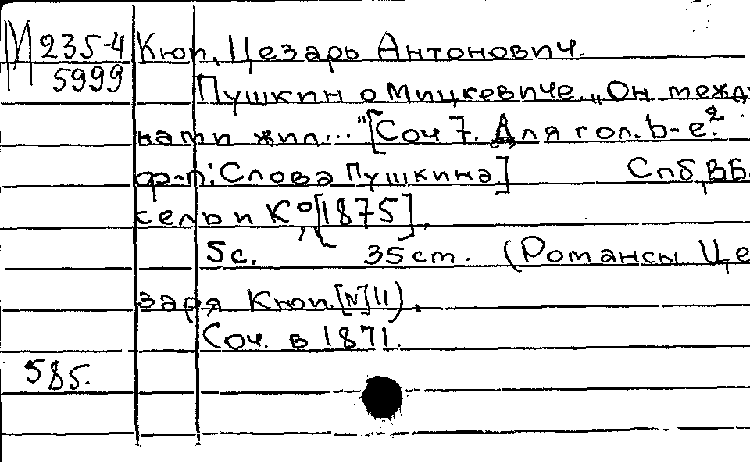 М 235-4 Кюи, Цезарь Антонович.
5999
Пушкин о Мицкевиче. „Он между
нами жил..." [Соч 7. Для гол. b-e² с
ф-п: Слова Пушкина] Спб, В Бес
сель и К° [1875],
5с. 35 cm. (Романсы Це
заря Кюи. [N] 11).
Соч. в 1871.
585.